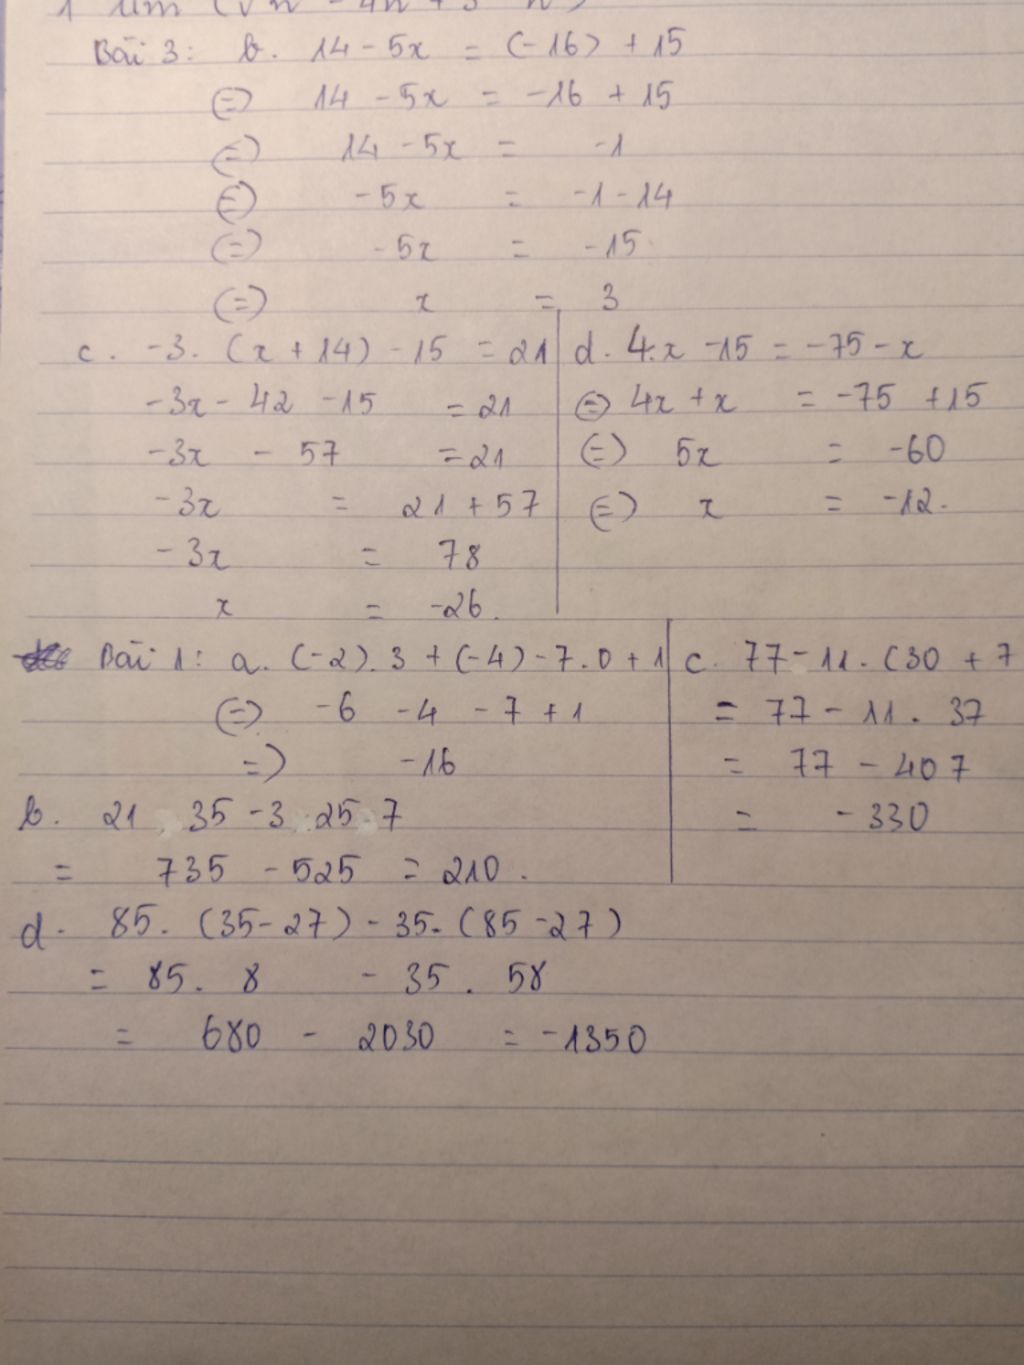 1 lim (√n² - 4n + 3 - n)
Bài 3: b. 14 - 5x = (-16) + 15
(=) 14 - 5x = -16 + 15
(=) 14 - 5x = -1
(=) -5x = -1 - 14
(=) -5x = -15
(=) x = 3
c. -3. (x + 14) - 15 = 21
-3x - 42 - 15 = 21
-3x - 57 = 21
-3x = 21 + 57
-3x = 78
x = -26.
d. 4.x - 15 = -75 - x
(=) 4x + x = -75 + 15
(=) 5x = -60
(=) x = -12.
Bài 1: a. (-2). 3 + (-4) - 7.0 + 1
(=) -6 - 4 - 7 + 1
=) -16
c. 77 - 11. (30 + 7
= 77 - 11. 37
= 77 - 407
= - 330
b. 21 . 35 - 3 . 25 . 7
= 735 - 525 = 210.
d. 85. (35 - 27) - 35. (85 - 27)
= 85. 8 - 35. 58
= 680 - 2030 = -1350